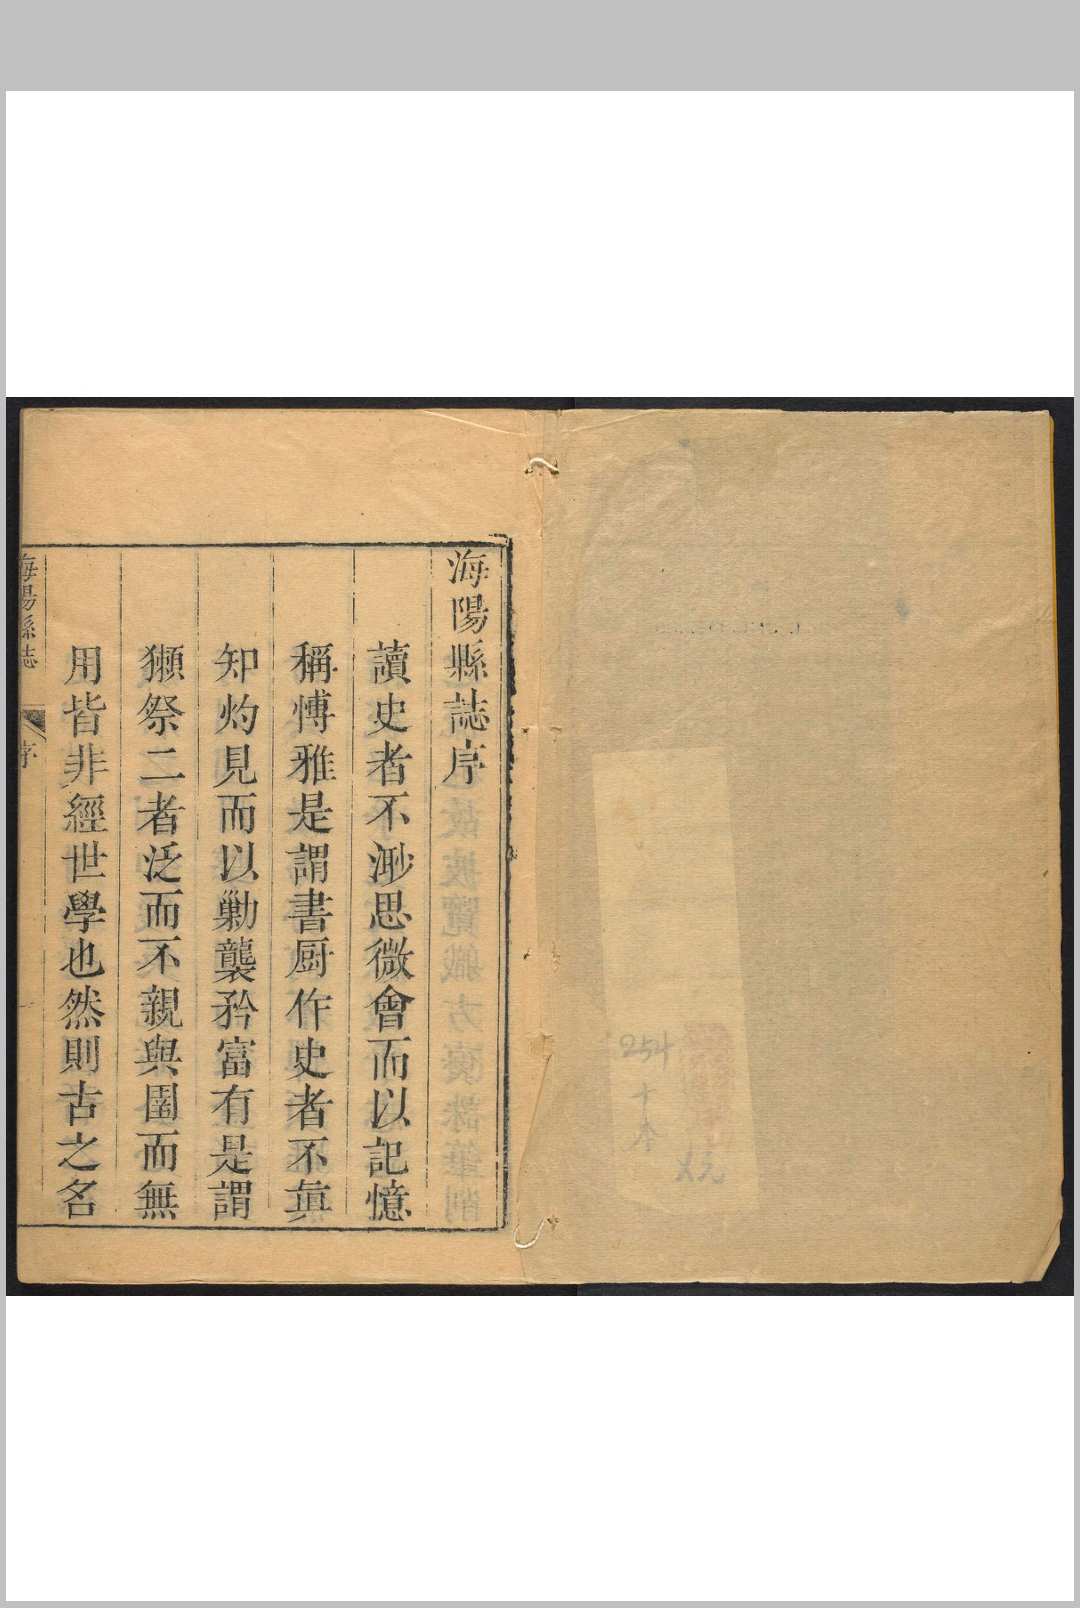 海陽縣誌序
讀史者不渺思微會而以記憶
稱愽雅是謂書厨作史者不真
知灼見而以勦襲矜富有是謂
獺祭二者泛而不親與圉而無
用皆非經世學也然則古之名
海陽縣誌
序
254
十本